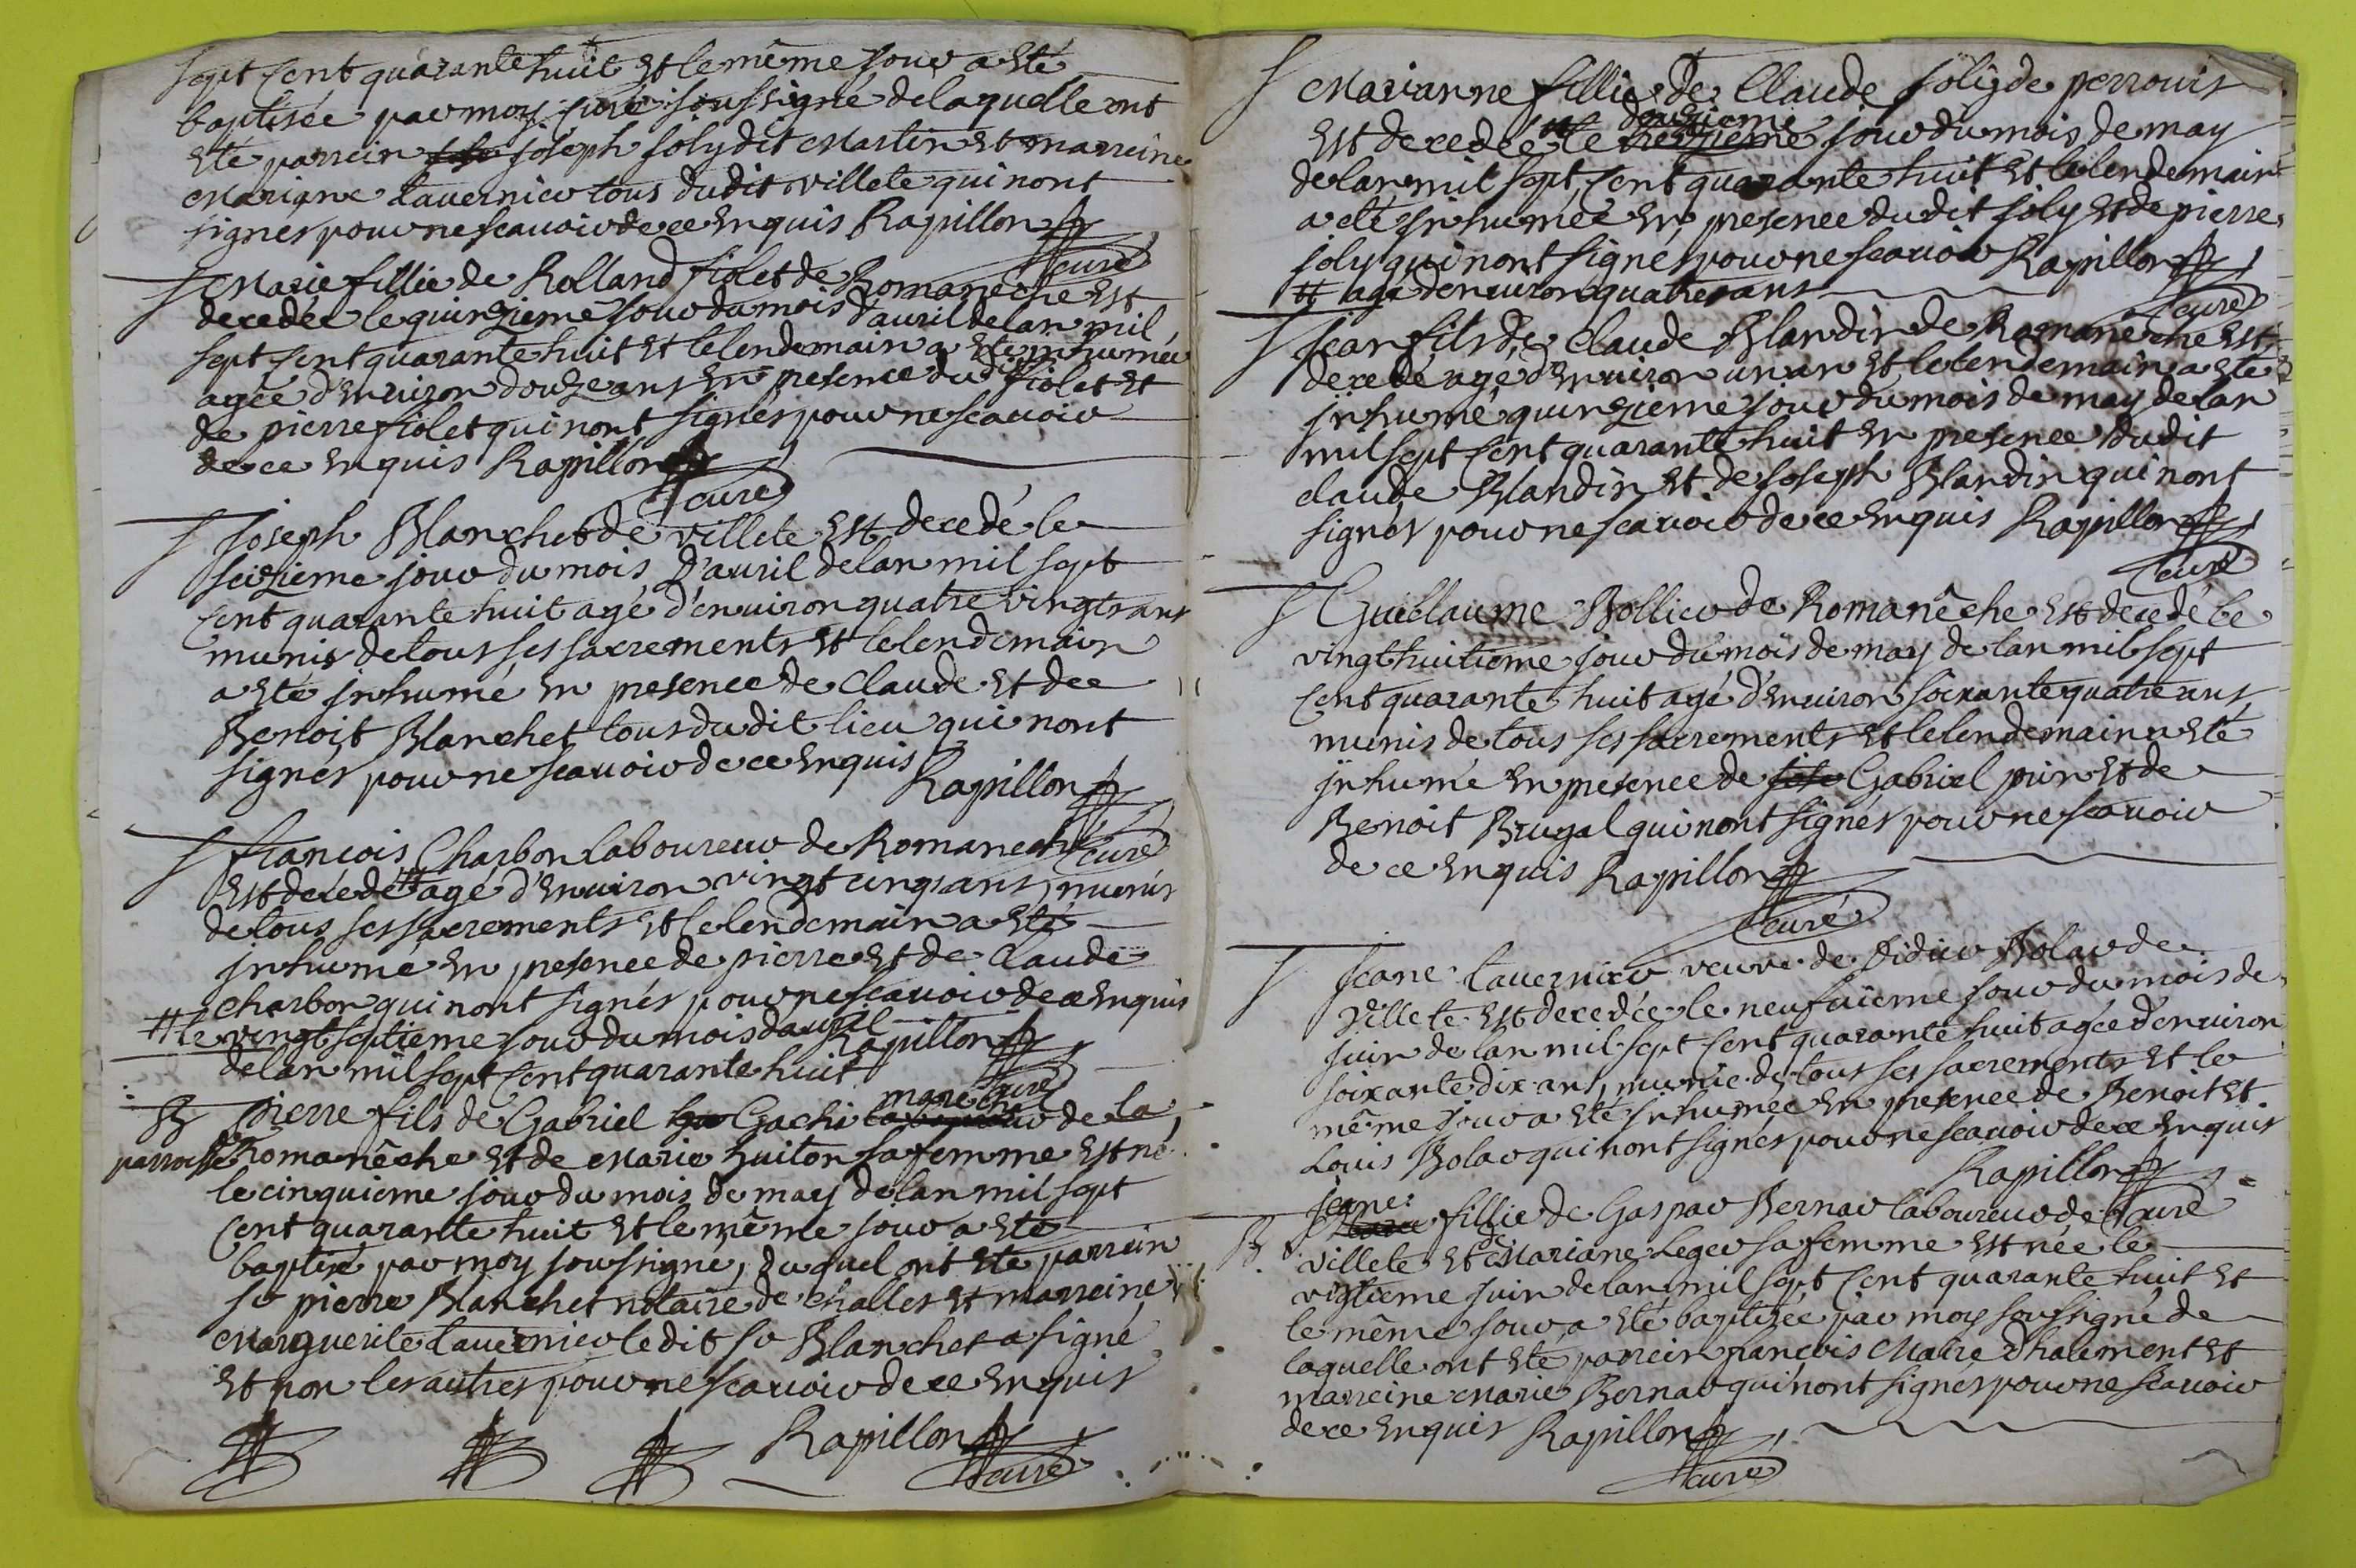 sept Cent quarante huit Et le même jour a Eté
baptisée par moy Curé soussigné de laquelle ont
Eté parrein joseph joly dit Martin Et marreine
Mariane tavernier tous dudit villete qui nont
signés pour ne scavoir de ce Enquis Rapillon
curé
S Marie fillie de Rolland fiolet de Romanêche Est
decedée le quinzieme jour du mois d'avril de lan mil
sept Cent quarante huit Et le lendemain a Eté inhumée
agée d'Environ douze ans En presence dudit fiolet Et
de pierre fiolet qui nont signés pour ne scavoir
de ce Enquis Rapillon
curé
S Joseph Blanchet de villete Est decedé le
seizieme jour du mois d'avril de lan mil sept
Cent quarante huit agé d'environ quatre vingts ans
munis de tous ses sacrements Et le lendemain
a Eté jnhumé En presence de Claude Et de
Benoist Blanchet tous dudit lieu qui nont
signés pour ne scavoir de ce Enquis
Rapillon
S francois Charbon laboureur de Romanech curé
Est decedé # agé d'Environ vingt cinq ans, munis
de tous ses sacrements Et le lendemain a Eté
jnhumé En presence de pierre Et de Claude
Charbon qui nont signés pour ne scavoir de ce Enquis
# le vingt septieme jour du mois davril Rapillon
de lan mil sept Cent quarante huit
curé
B pierre fils de Gabriel Gachi de la
parroisse de Romanêche Et de Marie huiton sa femme Est né
le cinquieme jour du mois de may de lan mil sept
Cent quarante huit Et le même jour a Eté
baptisé par moy soussigné, duquel ont Eté parrein
sr pierre Blanchet notaire de challes Et marreine
Marguerite tavernier ledit sr Blanchet a signé
Et non les autres pour ne scavoir de ce Enquis
Rapillon
curé
S Marianne fillie de Claude joly de perrouis
deuzieme
Est decedée # le jour du mois de may
de lan mil sept Cent quarante huit Et le lendemain
a eté jnhumée En presence dudit joly Et de pierre
joly qui nont signés pour ne scavoir Rapillon
# agé denviron quatre ans
curé
S jean fils de Claude Blandin de Romanêche Est
decedé agé d'Environ un an Et le lendemain a Eté
jnhumé quinzieme jour du mois de may de lan
mil sept Cent quarante huit En presence dudit
claude Blandin Et de Joseph Blandin qui nont
signés pour ne scavoir de ce Enquis Rapillon
curé
S Guillaume Bollier de Romanêche Est decedé le
vingt huitieme jour du mois de may de lan mil sept
Cent quarante huit agé d'Environ soixante quatre ans,
munis de tous ses sacrements Et le lendemain a Eté
jnhumé En presence de Gabriel prin Et de
Benoit Brugal qui nont signés pour ne scavoir
de ce Enquis Rapillon
curé
S Jeane tavernier veuve de Didier Bolar de
Villete Est decedée le neufvieme jour du mois de
juin de lan mil sept Cent quarante huit agée d'environ
soixante dix ans, munie de tous ses sacrements Et le
même jour a Eté jnhumée En presence de Benoit Et
Louis Bolar qui nont signés pour ne scavoir de ce Enquis
Rapillon
curé
jeane
B fillie de Gaspar Bernar laboureur de
villete Et de Mariane Leger sa femme Est née le
vigtieme juin de lan mil sept Cent quarante huit Et
le même jour a Eté baptisée par moy soussigné de
laquelle ont Eté parrein francois Maire Et
marreine Marie Bernar qui nont signés pour ne scavoir
de ce Enquis Rapillon
curé